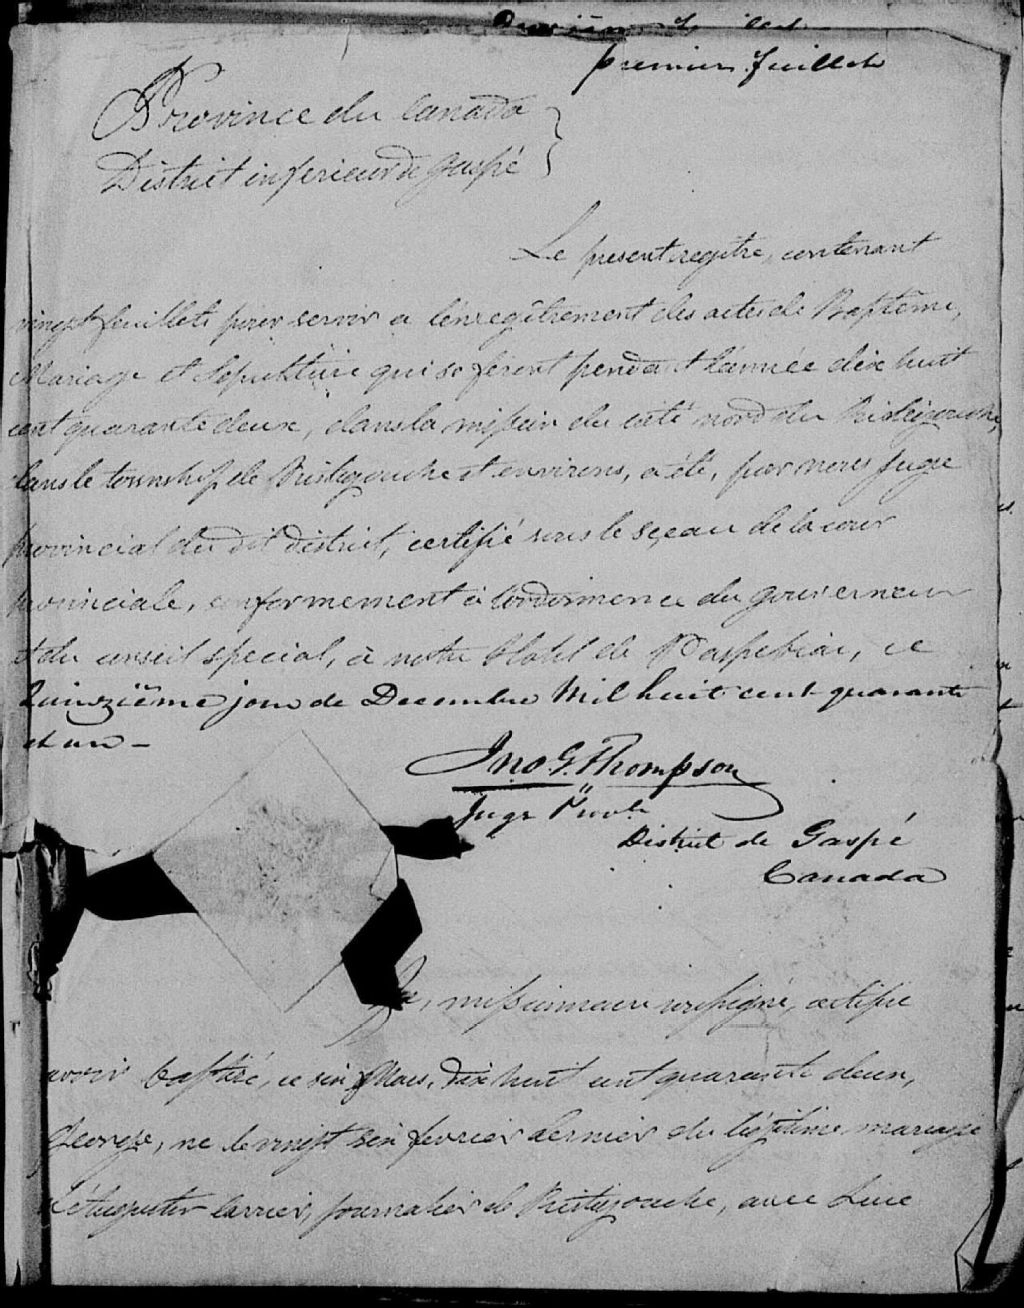 premier feuillet
Province du Canada
District inferieur de Gaspé
Le present registre, contenant
vingt feuillets pour servir a l'enregîtrement des actes de Baptême,
Mariage et Sepulture qui se feront pendant l'année dix huit
cent quarante deux, dans la mission du coté nord du Ristigouche,
dans le township de Ristigouche et environs, a été, par nous Juge
provincial du dit district, certifié sous le sceau de la cour
provinciale, conformement à l'ordonnence du gouverneur
et du conseil special, à notre hotel de Paspebiac, ce
Quinzième jour de Decembre Mil huit cent quarante
et un -
Jno G. Thompson
Juge Provl.
District de Gaspé
Canada
Je, missionnaire soussigné, certifie
avoir baptisé, ce six Mars, dix huit cent quarante deux,
George, né le vingt six fevrier dernier du légitime mariage
de carrier, journalier de Ristigouche, avec Luce